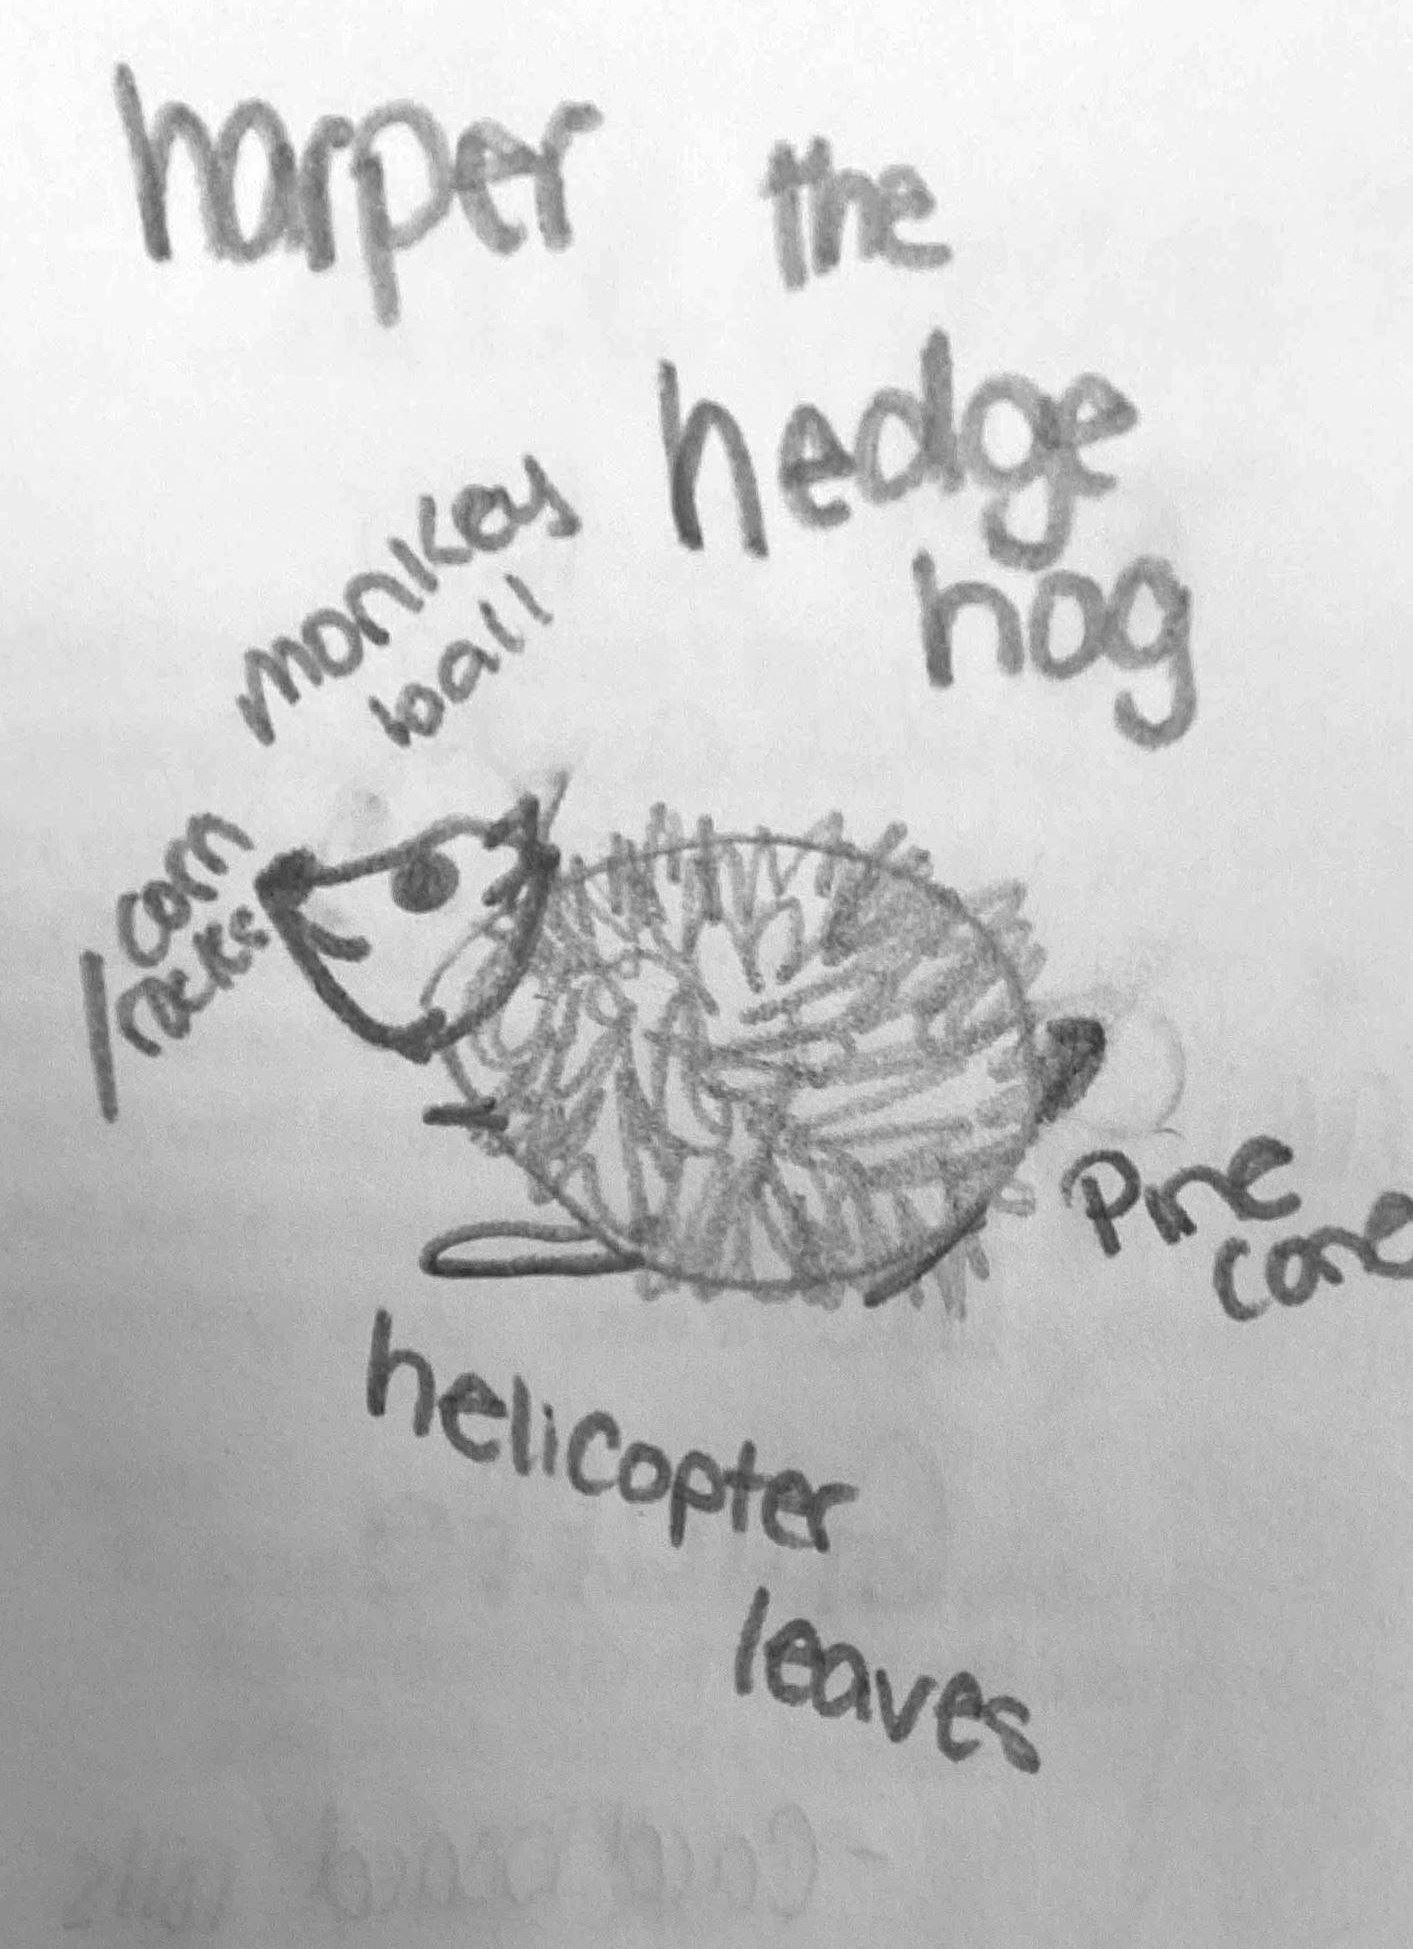 harper the
hedge
hog
monkey
ball
corn
/rocks
Pine
cone
helicopter
leaves